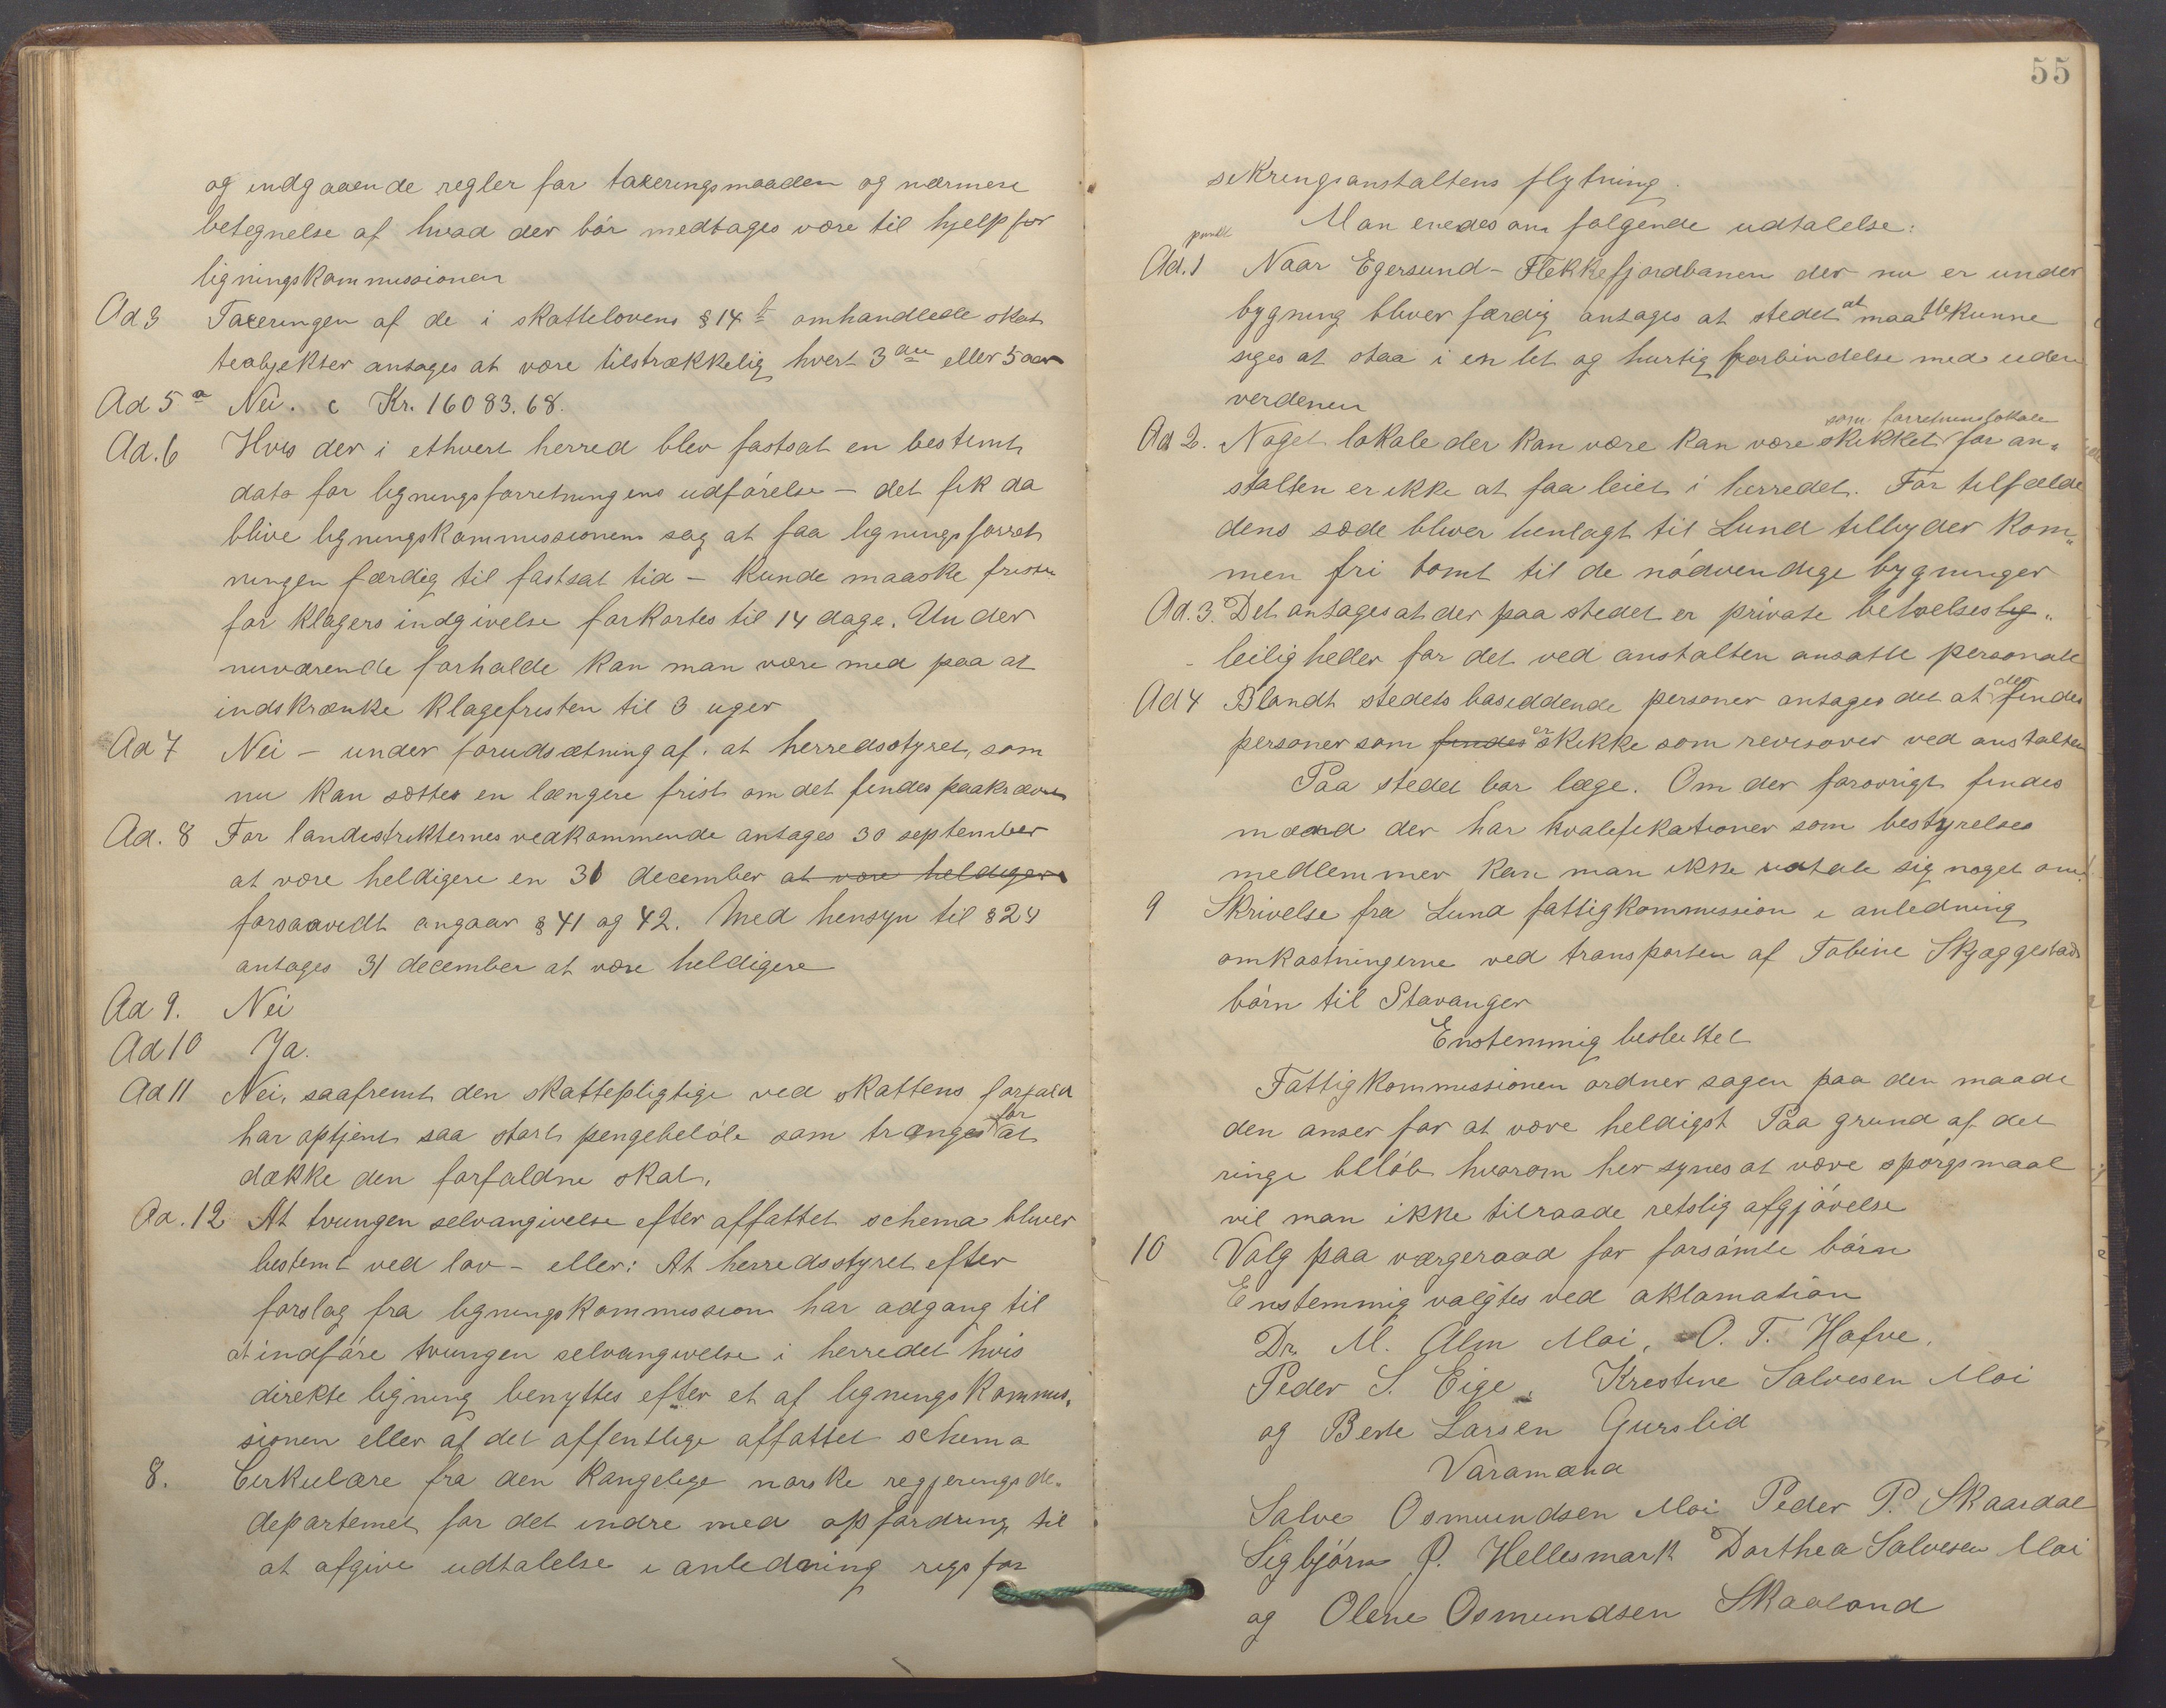 og indgaaende regler for taxeringsmaaden og nærmere
betegnelse af hvad der bør medtages være til hjelp for
ligningskommissionen
Ad 3 Taxeringen af de i skattelovens § 14 omhandlede skat
teobjekter antages at være tilstrækkelig hvert 3die eller 5 aar
Ad 5 a Nei. c Kr. 16083.68.
Ad. 6 Hvis der i ethvert herred blev fastsat en bestemt
dato for ligningsforretningens udførelse – det fik da
blive ligningskommissionens sag at faa ligningsforret
ningen færdig til fastsat tid – kunde maaske fristen
for klagers indgivelse forkortes til 14 dage. Under
nuværende forholde kan man være med paa at
indskrænke klagefristen til 3 uger
Ad 7 Nei – under forudsætning af at herredsstyret, som
nu kan sættes en længere frist om det findes paakrævet
Ad. 8 For landistrikternes vedkommende antages 30 september
at være heldigere en 31 december at være heldigere
forsaavidt angaar § 41 og 42. Med hensyn til § 24
antages 31 december at være heldigere
Ad 9. Nei
Ad 10 Ja.
Ad 11 Nei, saafremt den skattepligtige ved skattens forfald
har optjent saa stort pengebeløb som trænges for at
dække den forfaldne skat.
Ad. 12 At tvungen selvangivelse efter affattet schema bliver
bestemt ved lov – eller: At herredsstyret efter
forslag fra ligningskommission har adgang til
at indføre tvungen selvangivelse i herredet hvis
direkte ligning benyttes efter et af ligningskommis„
sionen eller af det offentlige affattet schema
8. Cirkulære fra den kongelige norske regjerings de„
departemet for det indre med opfordring til
at afgive udtalelse i anledning rigsfor
55
sikringsanstaltens flytning.
Man enedes om følgende udtalelse:
punkt
Ad. 1 Naar Egersund – Flekkefjordbanen der nu er under
bygning bliver færdig antages at stedet at maatte kunne
siges at staa i en let og hurtig forbindelse med uden
verdenen
som forretningslokale
Ad 2. Noget lokale der kan være kan være skikket for an„
stalten er ikke at faa leiet i herredet. Før tilfælde
dens sæde bliver henlagt til Lund tilbyder kom„
men fri tomt til de nødvendige bygninger
Ad. 3. Det antages at der paa stedet er private beboelseslig„
leiligheder for det ved anstalten ansatte personale
Ad 4 Blandt stedets bosiddende personer antages det at der findes
personer som findes er skikke som revisorer ved anstalten
Paa stedet bor læge. Om der forøvrigt findes
mænd der har kvalifikationer som bestyrelses
medlemmer kan man ikke udtale sig noget om.
9 Skrivelse fra Lund fattigkommission i anledning
omkostningerne ved transporten af Tobine Skjæggestads
børn til Stavanger
Enstemmig besluttet
Fattigkommissionen ordner sagen paa den maade
den anser for at være heldigst Paa grund af det
ringe beløb hvorom her synes at være spørgsmaal
vil man ikke tilraade retslig afgjørelse
10 Valg paa værgeraad for forsømte børn
Enstemmig valgtes ved aklamation
Dr. M. Alm Moi, O. T. Hafve,
Peder S. Eige, Kristine Salvesen Moi
og Berte Larsen Gurslid
Varamænd
Salve Osmundsen Moi Peder P. Skaardal
Sigbjørn P. Hellesmark Dorthea Salvesen Moi
og Olene Osmundsen Skaaland